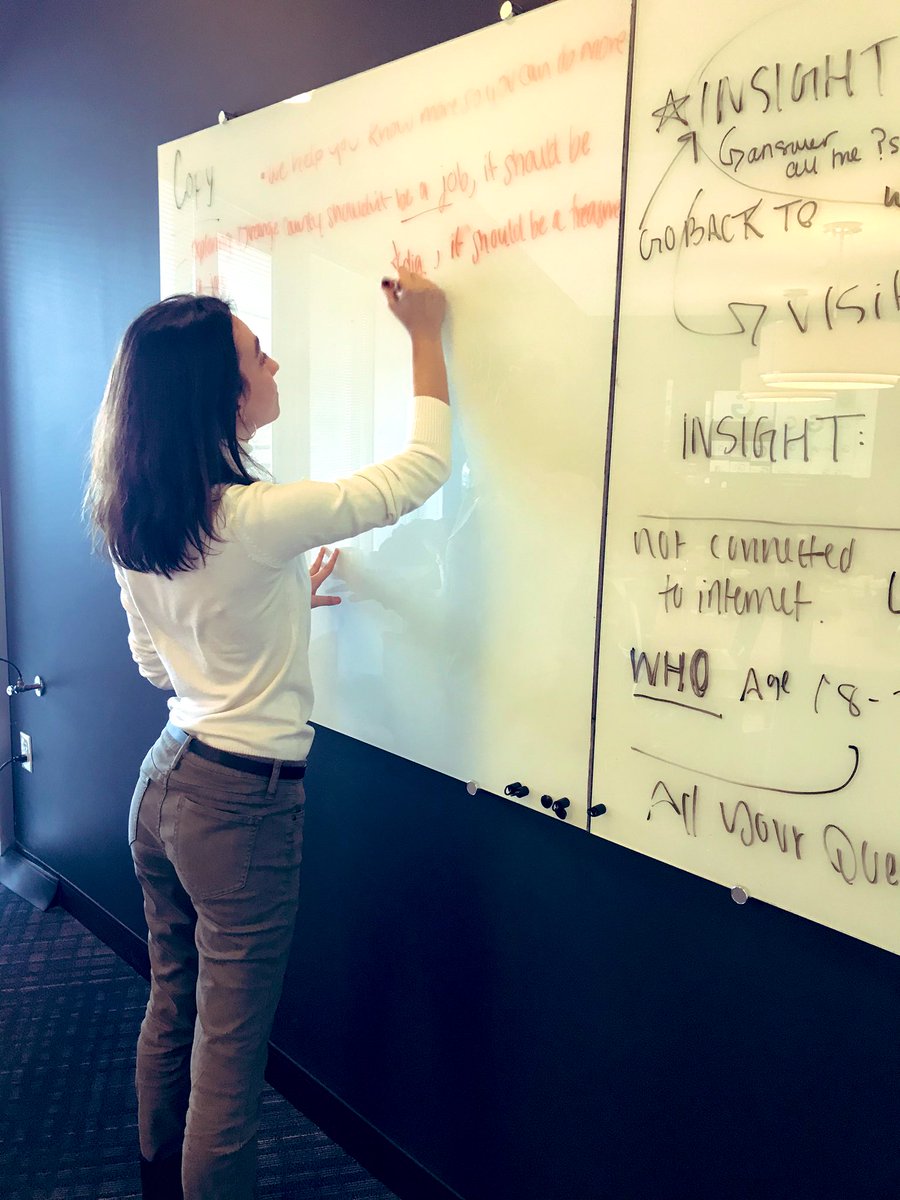 Copy
• we help you know more so you can do more
Orange County should not be a job, it should be
it should be a treasure
☆ INSIGHT
answer
all the ?s
GO BACK TO
VISI
INSIGHT:
not connected
to internet.
WHO Age 18-
All Your Que